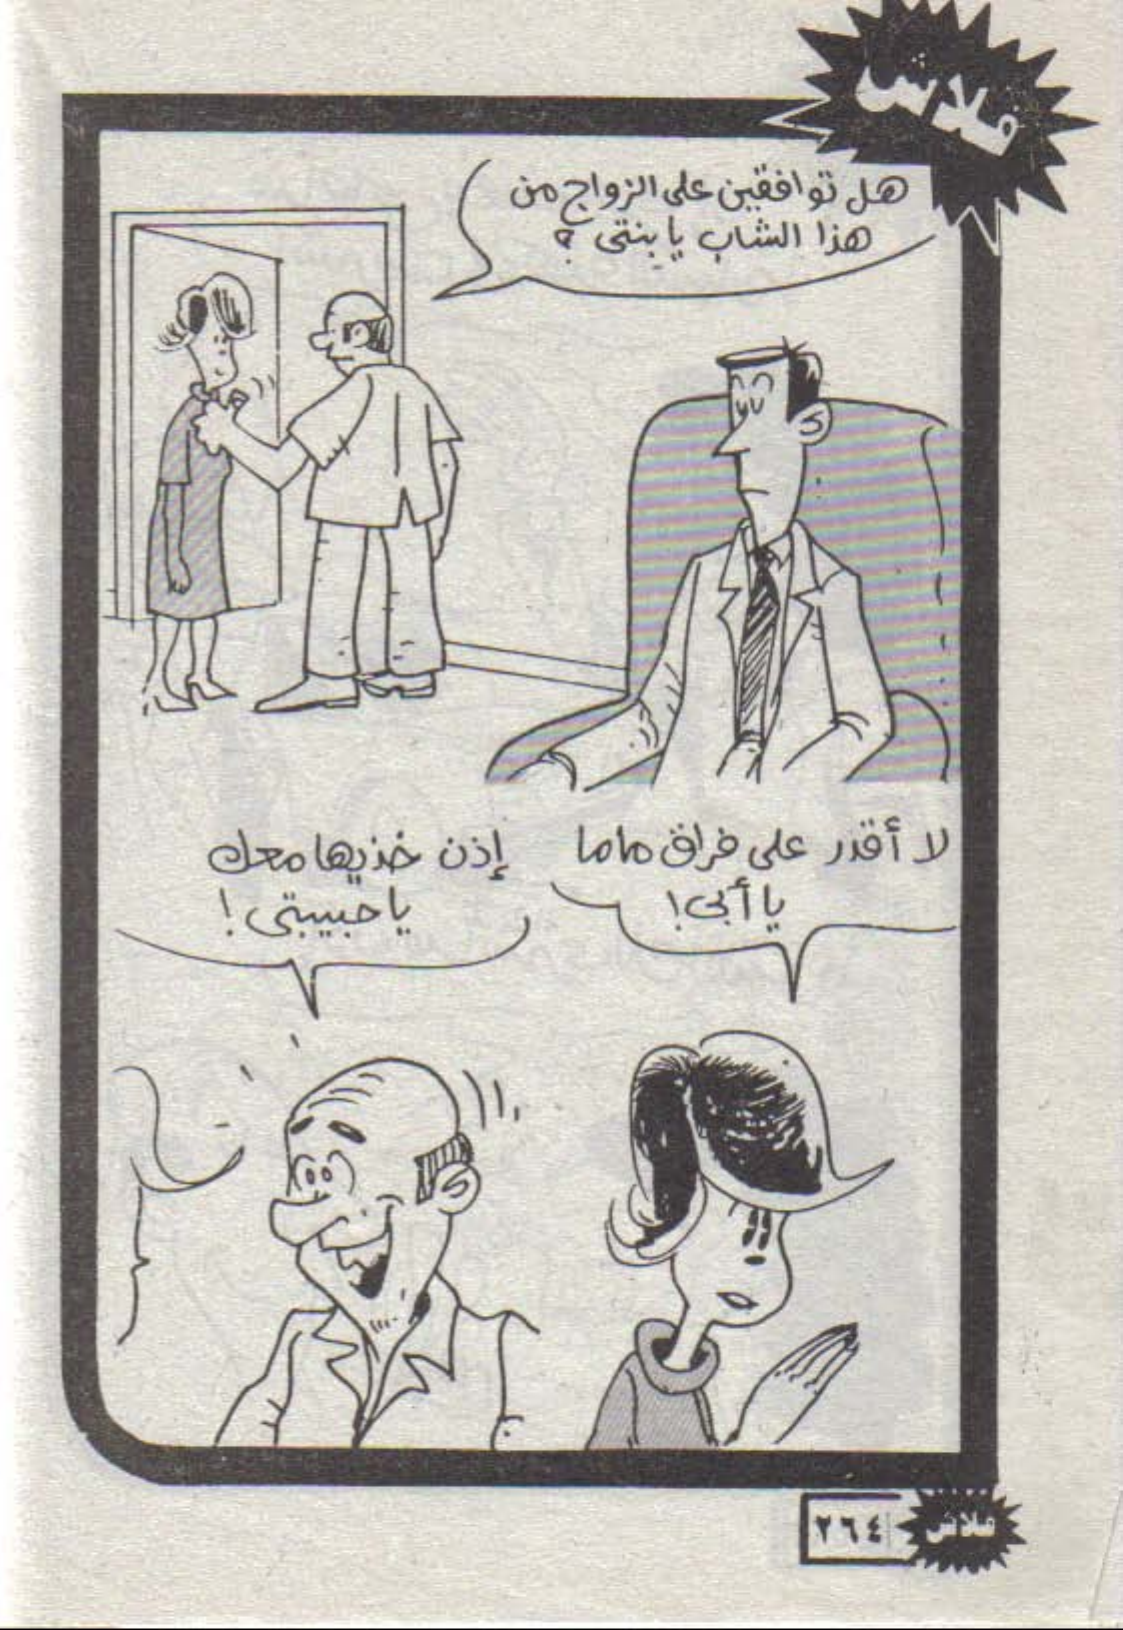 فلاش
هل توافقين على الزواج من
هذا الشاب يا بنتى ؟
لا أقدر على فراق ماما
يا أبى !
إذن خذيها معك
يا حبيبتى !
٢٦٤
فلاش